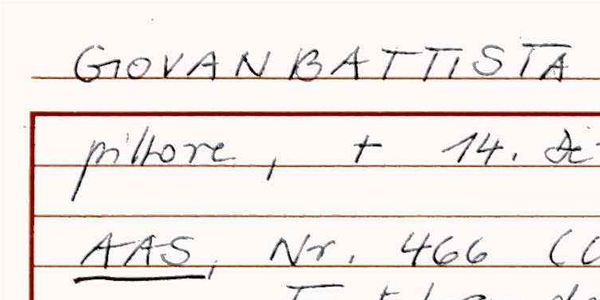 GIOVAN BATTISTA
pittore, + 14.
AAS, Nr. 466